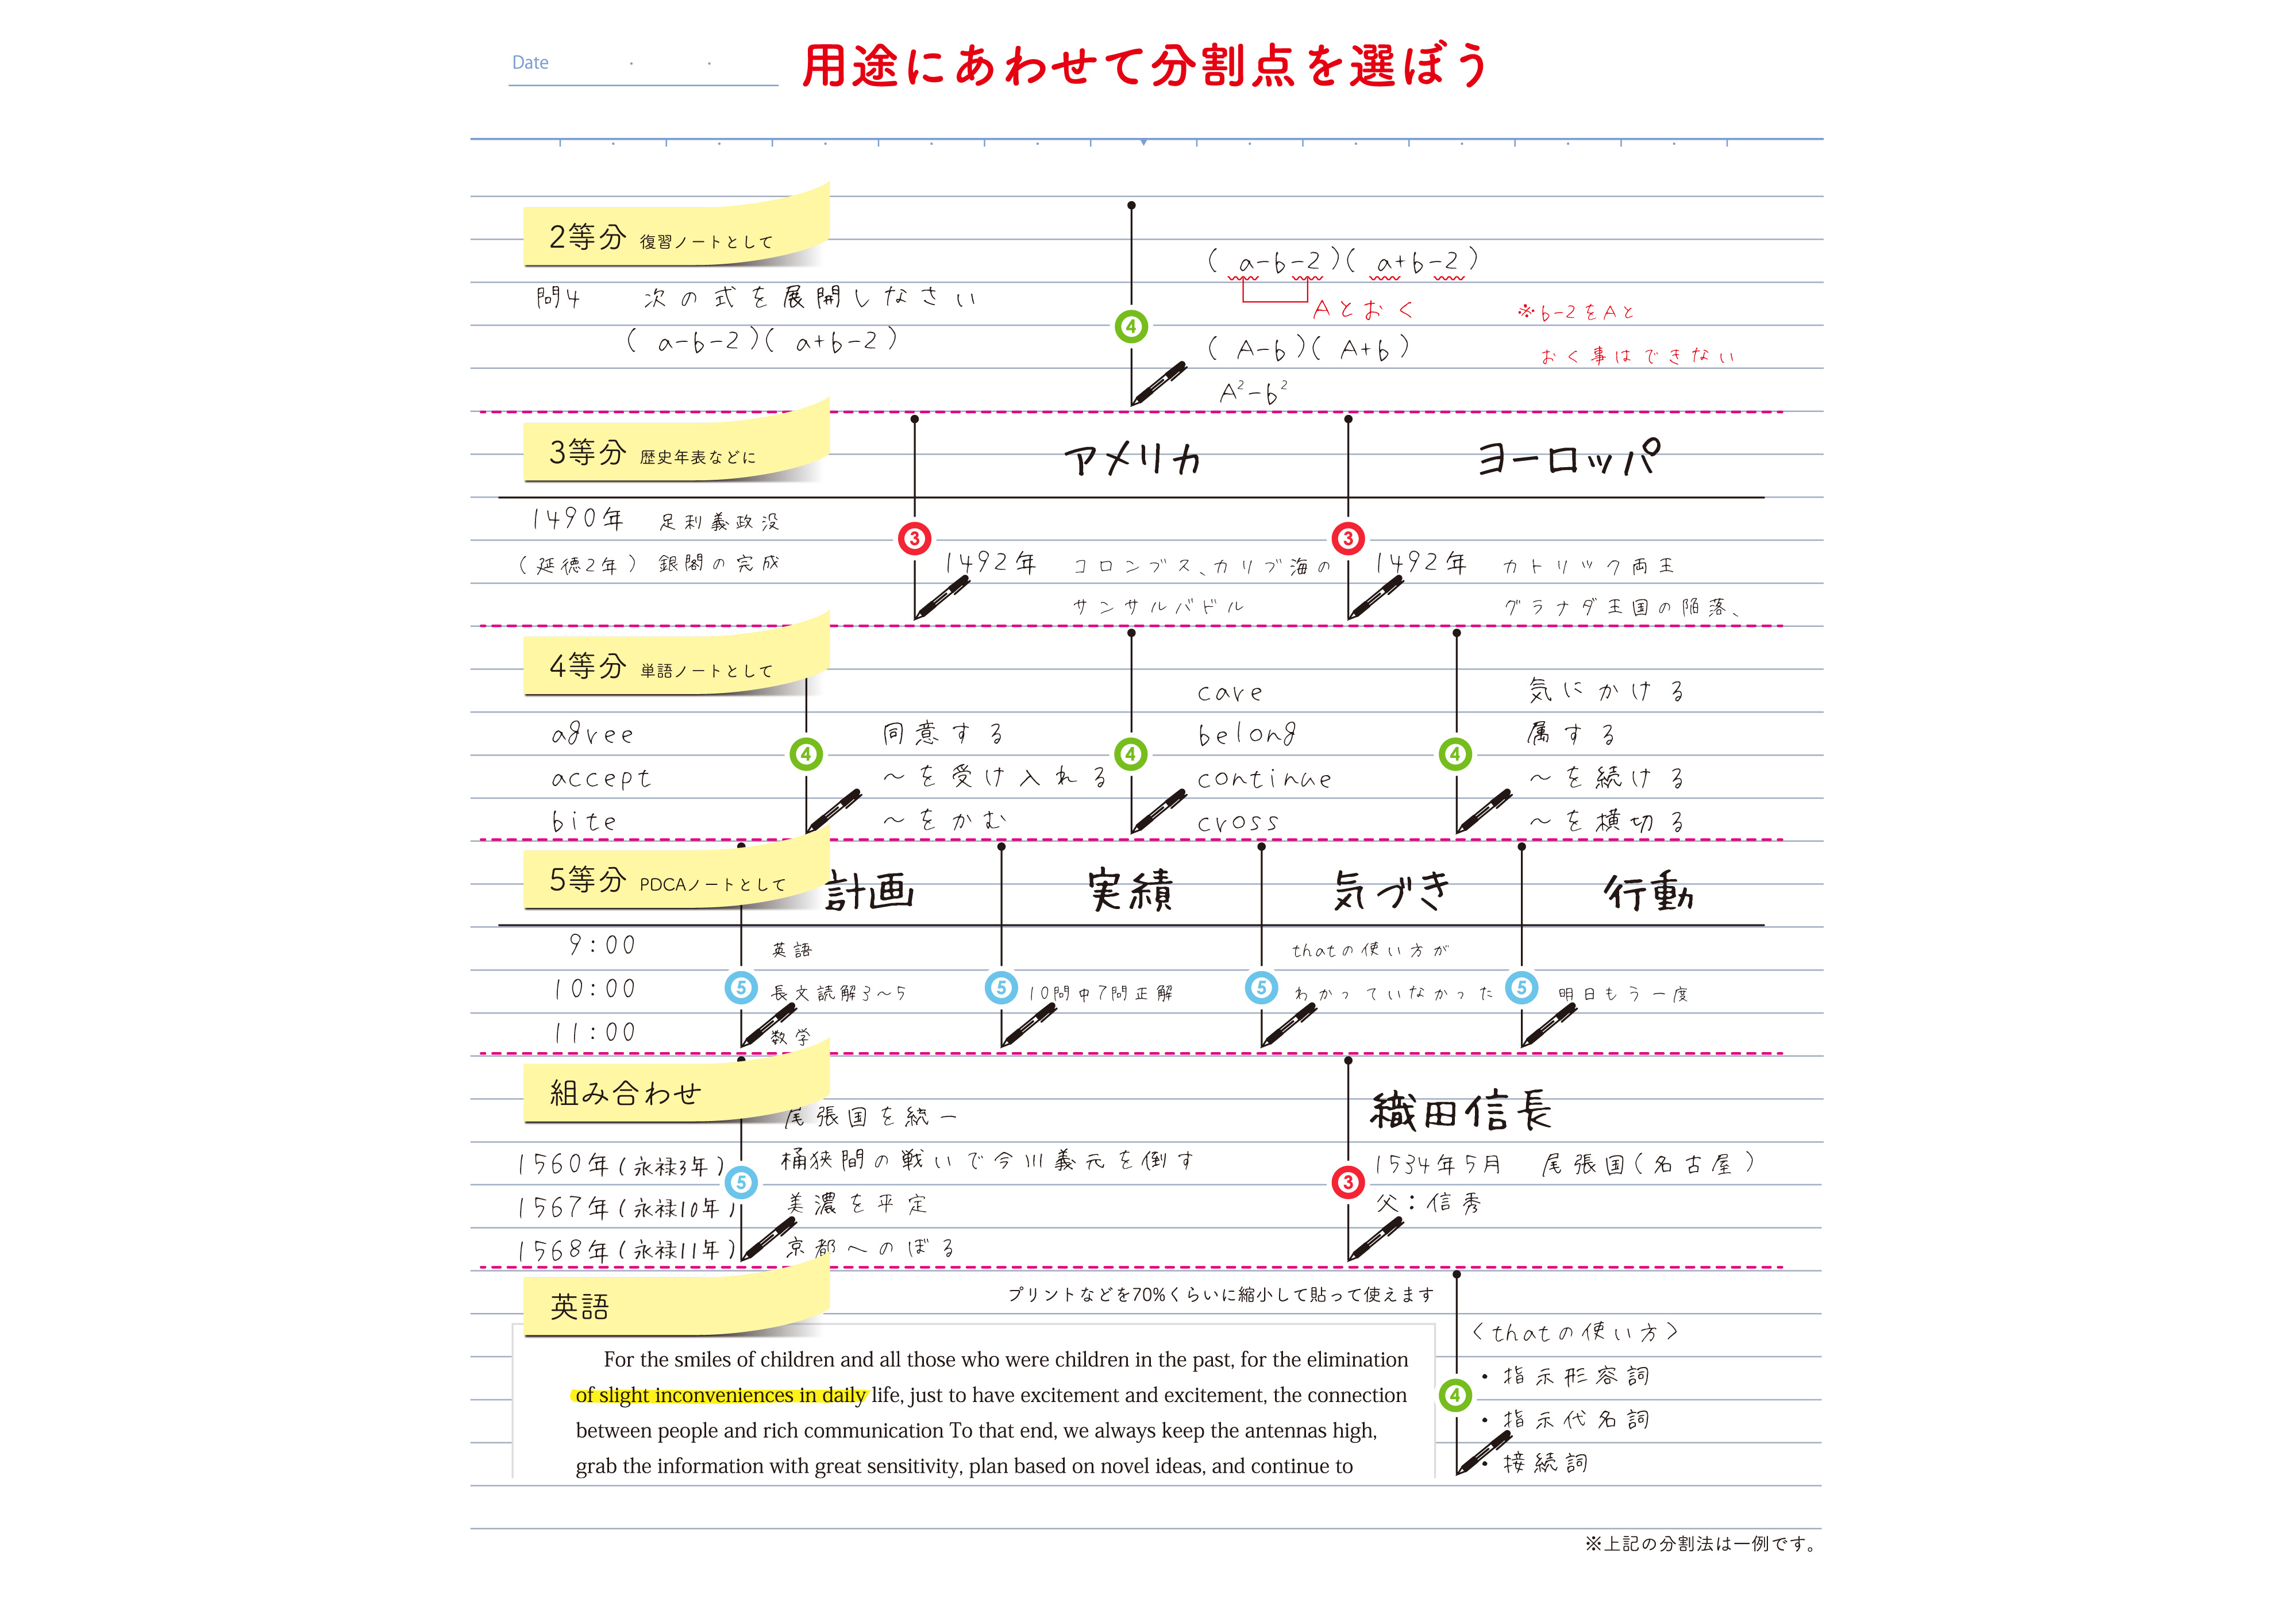 Date
用途にあわせて分割点を選ぼう
2等分 復習ノートとして
問4 次の式を展開しなさい
( a-b-2 )( a+b-2 )
4
( a-b-2 )( a+b-2 )
Aとおく
※b-2をAと
おく事はできない
( A-b )( A+b )
A²-b²
3等分 歴史年表などに
アメリカ
ヨーロッパ
1490年 足利義政没
(延徳2年) 銀閣の完成
3
1492年 コロンブス、カリブ海の
サンサルバドル
3
1492年 カトリック両王
グラナダ王国の陥落、
4等分 単語ノートとして
agree
accept
bite
4
同意する
～を受け入れる
～をかむ
4
care
belong
continue
cross
4
気にかける
属する
～を続ける
～を横切る
5等分 PDCAノートとして
計画
実績
気づき
行動
9:00
10:00
11:00
5
英語
長文読解3～5
数学
5
10問中7問正解
5
thatの使い方が
わかっていなかった
5
明日もう一度
組み合わせ
尾張国を統一
1560年(永禄3年) 桶狭間の戦いで今川義元を倒す
5
1567年(永禄10年) 美濃を平定
1568年(永禄11年) 京都へのぼる
織田信長
3
1534年5月 尾張国(名古屋)
父:信秀
英語
プリントなどを70%くらいに縮小して貼って使えます
For the smiles of children and all those who were children in the past, for the elimination
of slight inconveniences in daily life, just to have excitement and excitement, the connection
between people and rich communication To that end, we always keep the antennas high,
grab the information with great sensitivity, plan based on novel ideas, and continue to
4
〈thatの使い方〉
・指示形容詞
・指示代名詞
・接続詞
※上記の分割法は一例です。